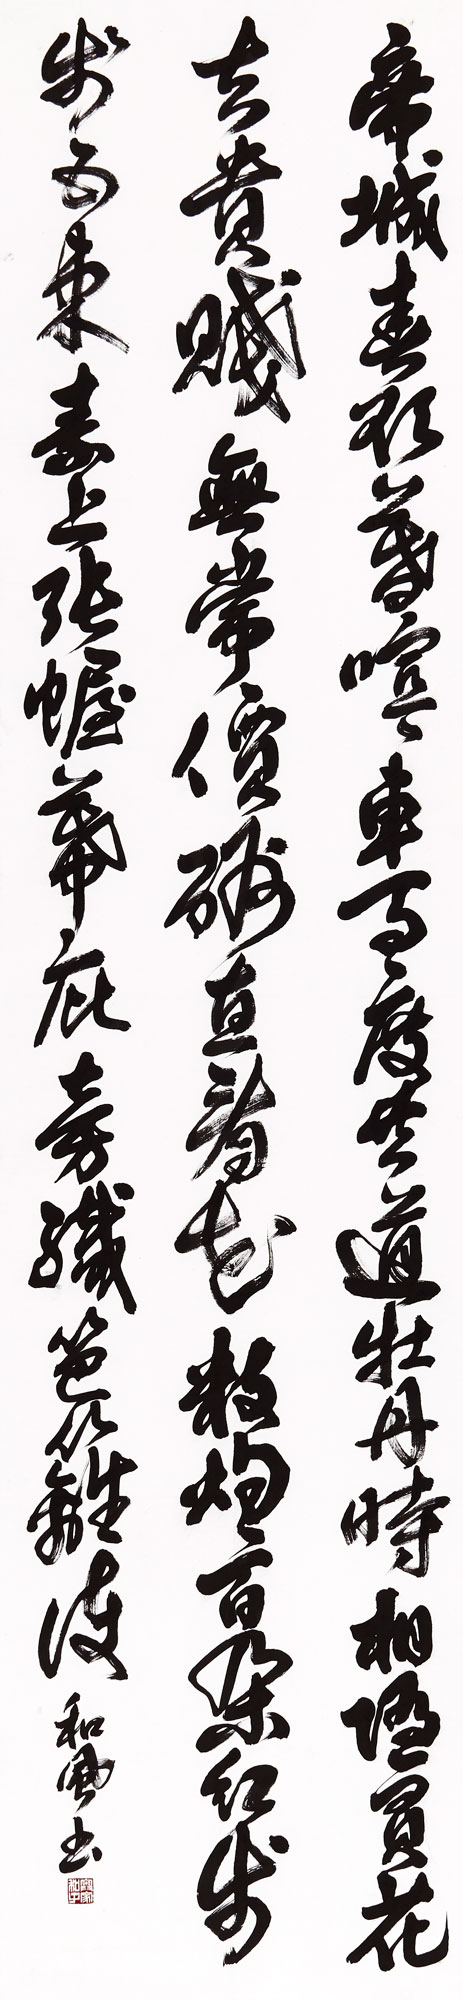 帝城春欲暮喧々車馬度共道牡丹時相随買花
去貴賤無常價酬直看花數灼々百朵紅戔
戔五束素上張幄幕庇旁織笆籬護
和風書